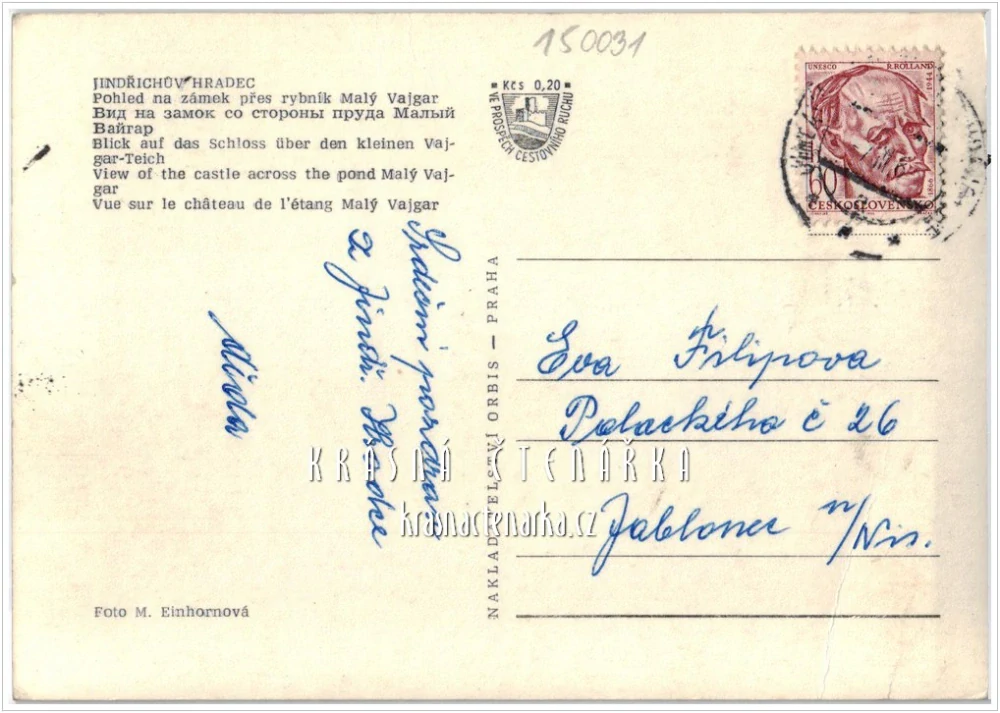 150031
JINDŘICHŮV HRADEC
Pohled na zámek přes rybník Malý Vajgar
Вид на замок со стороны пруда Малый
Вайгар
Blick auf das Schloss über den kleinen Vaj-
gar-Teich
View of the castle across the pond Malý Vaj-
gar
Vue sur le château de l'étang Malý Vajgar
Kčs 0,20
VE PROSPĚCH CESTOVNÍHO RUCHU
UNESCO R. ROLLAND
1866 1944
60
ČESKOSLOVENSKO
Srdeční pozdrav
z Jindř. Hradce
Mída
NAKLADATELSTVÍ ORBIS — PRAHA
Eva Filipova
Palackého č 26
Jablonec n/Nis.
KRÁSNÁ ČTENÁŘKA
krasnactenarka.cz
Foto M. Einhornová